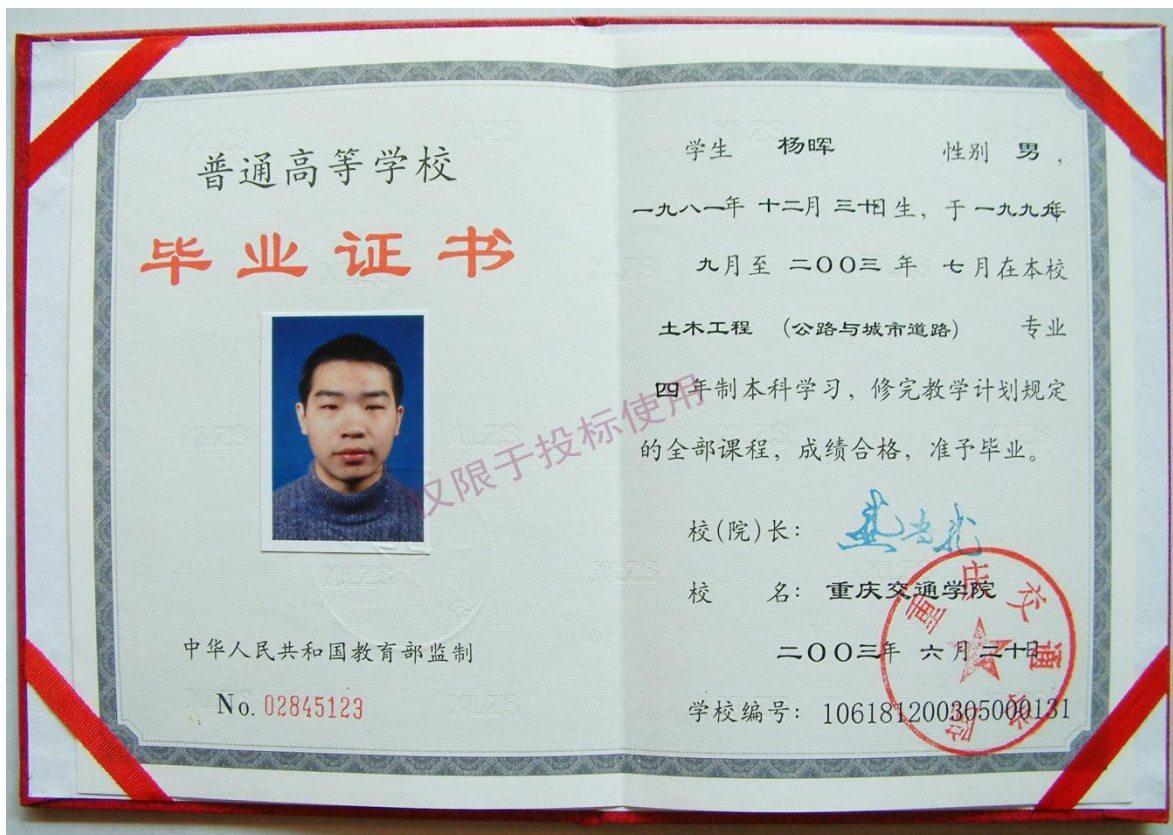 普通高等学校
毕业证书
中华人民共和国教育部监制
No. 02845123
学生 杨晖 性别 男，
一九八一年 十二月 三十日生，于一九九九年
九月至 二〇〇三 年 七月在本校
土木工程 （公路与城市道路） 专业
四年制本科学习，修完教学计划规定
的全部课程，成绩合格，准予毕业。
校(院)长：
校 名：重庆交通学院
二〇〇三年 六月二十日
学校编号：106181200305000131
仅限于投标使用
重庆交通学院
XLZS